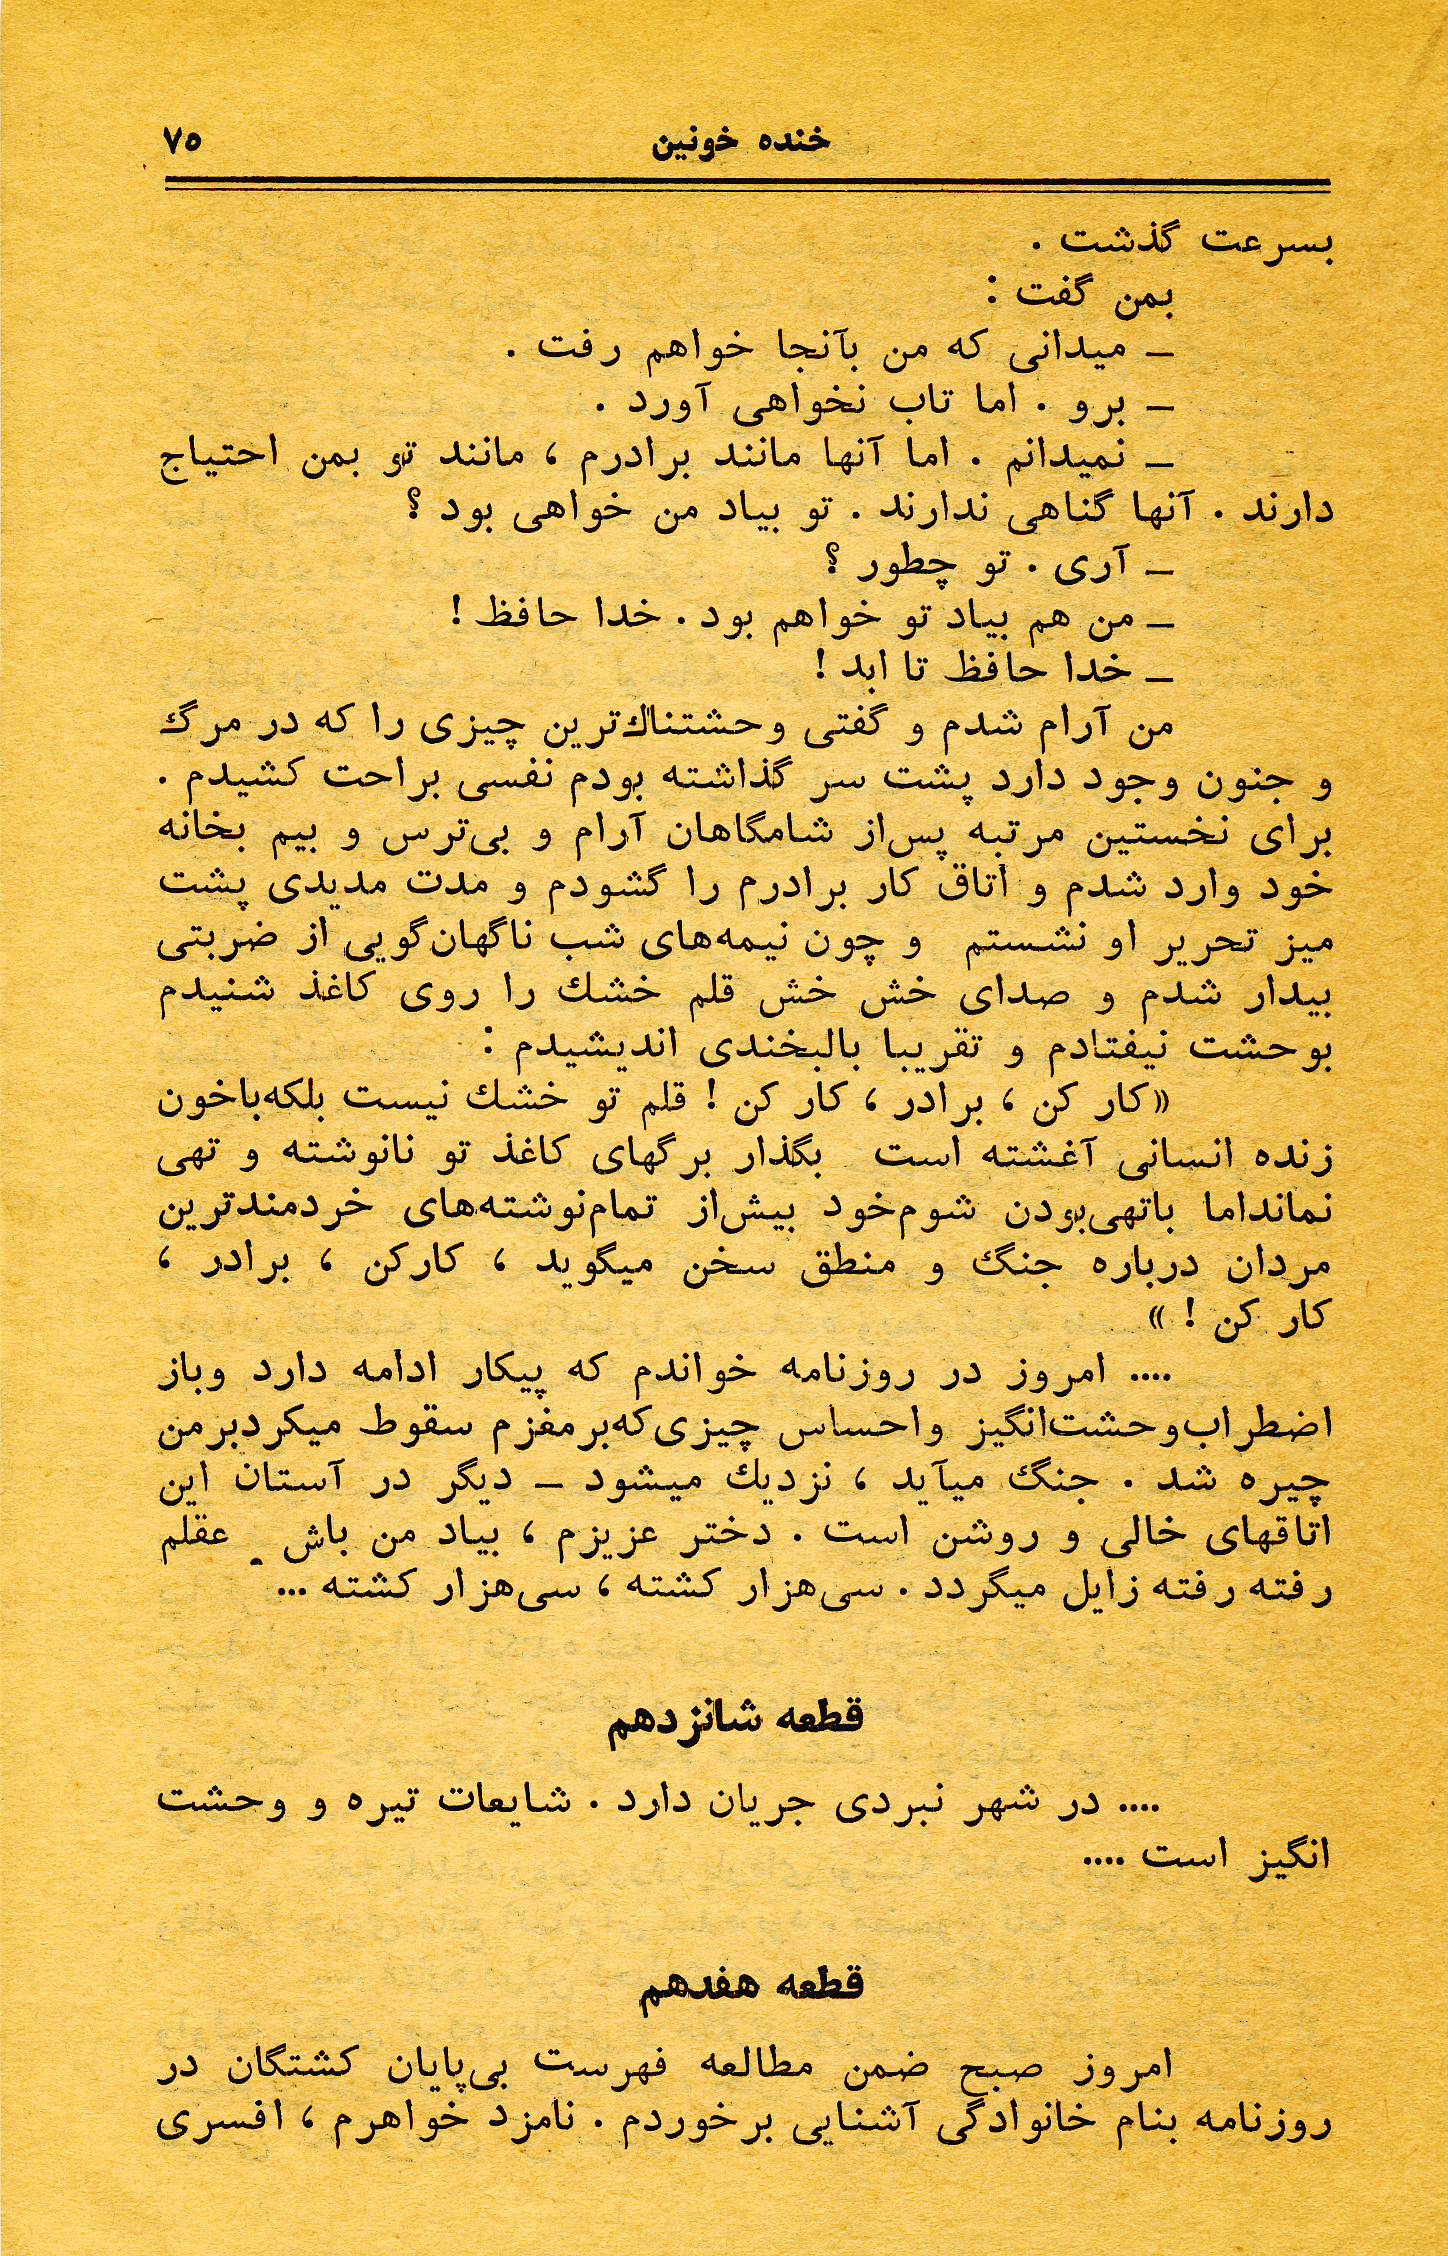 خنده خونین ۷۵
بسرعت گذشت .
بمن گفت :
ـ میدانی که من بآنجا خواهم رفت .
ـ برو . اما تاب نخواهی آورد .
ـ نمیدانم . اما آنها مانند برادرم ، مانند تو بمن احتیاج
دارند . آنها گناهی ندارند . تو بیاد من خواهی بود ؟
ـ آری . تو چطور ؟
ـ من هم بیاد تو خواهم بود . خدا حافظ !
ـ خدا حافظ تا ابد !
من آرام شدم و گفتی وحشتناك‌ترین چیزی را که در مرگ
و جنون وجود دارد پشت سر گذاشته بودم نفسی براحت کشیدم .
برای نخستین مرتبه پس‌از شامگاهان آرام و بی‌ترس و بیم بخانه
خود وارد شدم و اتاق کار برادرم را گشودم و مدت مدیدی پشت
میز تحریر او نشستم و چون نیمه‌های شب ناگهان‌گویی از ضربتی
بیدار شدم و صدای خش خش قلم خشك را روی کاغذ شنیدم
بوحشت نیفتادم و تقریبا بالبخندی اندیشیدم :
«کار کن ، برادر ، کار کن ! قلم تو خشك نیست بلکه‌باخون
زنده انسانی آغشته است بگذار برگهای کاغذ تو نانوشته و تهی
نمانداما باتهی‌بودن شوم‌خود بیش‌از تمام‌نوشته‌های خردمندترین
مردان درباره جنگ و منطق سخن میگوید ، کارکن ، برادر ،
کار کن ! »
.... امروز در روزنامه خواندم که پیکار ادامه دارد وباز
اضطراب‌وحشت‌انگیز واحساس چیزی‌که‌برمغزم سقوط میکردبرمن
چیره شد . جنگ میآید ، نزدیك میشود ـ دیگر در آستان این
اتاقهای خالی و روشن است . دختر عزیزم ، بیاد من باش . عقلم
رفته رفته زایل میگردد . سی‌هزار کشته ، سی‌هزار کشته ...
قطعه شانزدهم
.... در شهر نبردی جریان دارد . شایعات تیره و وحشت
انگیز است ....
قطعه هفدهم
امروز صبح ضمن مطالعه فهرست بی‌پایان کشتگان در
روزنامه بنام خانوادگی آشنایی برخوردم . نامزد خواهرم ، افسری